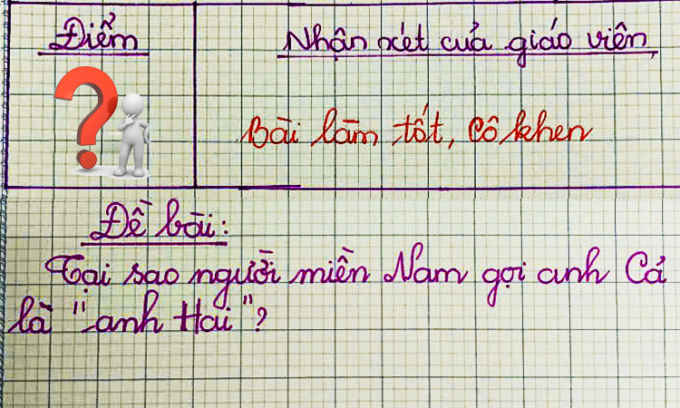 Điểm
Nhận xét của giáo viên
Bài làm tốt, Cô khen
Đề bài:
Tại sao người miền Nam gọi anh Cả
là "anh Hai"?